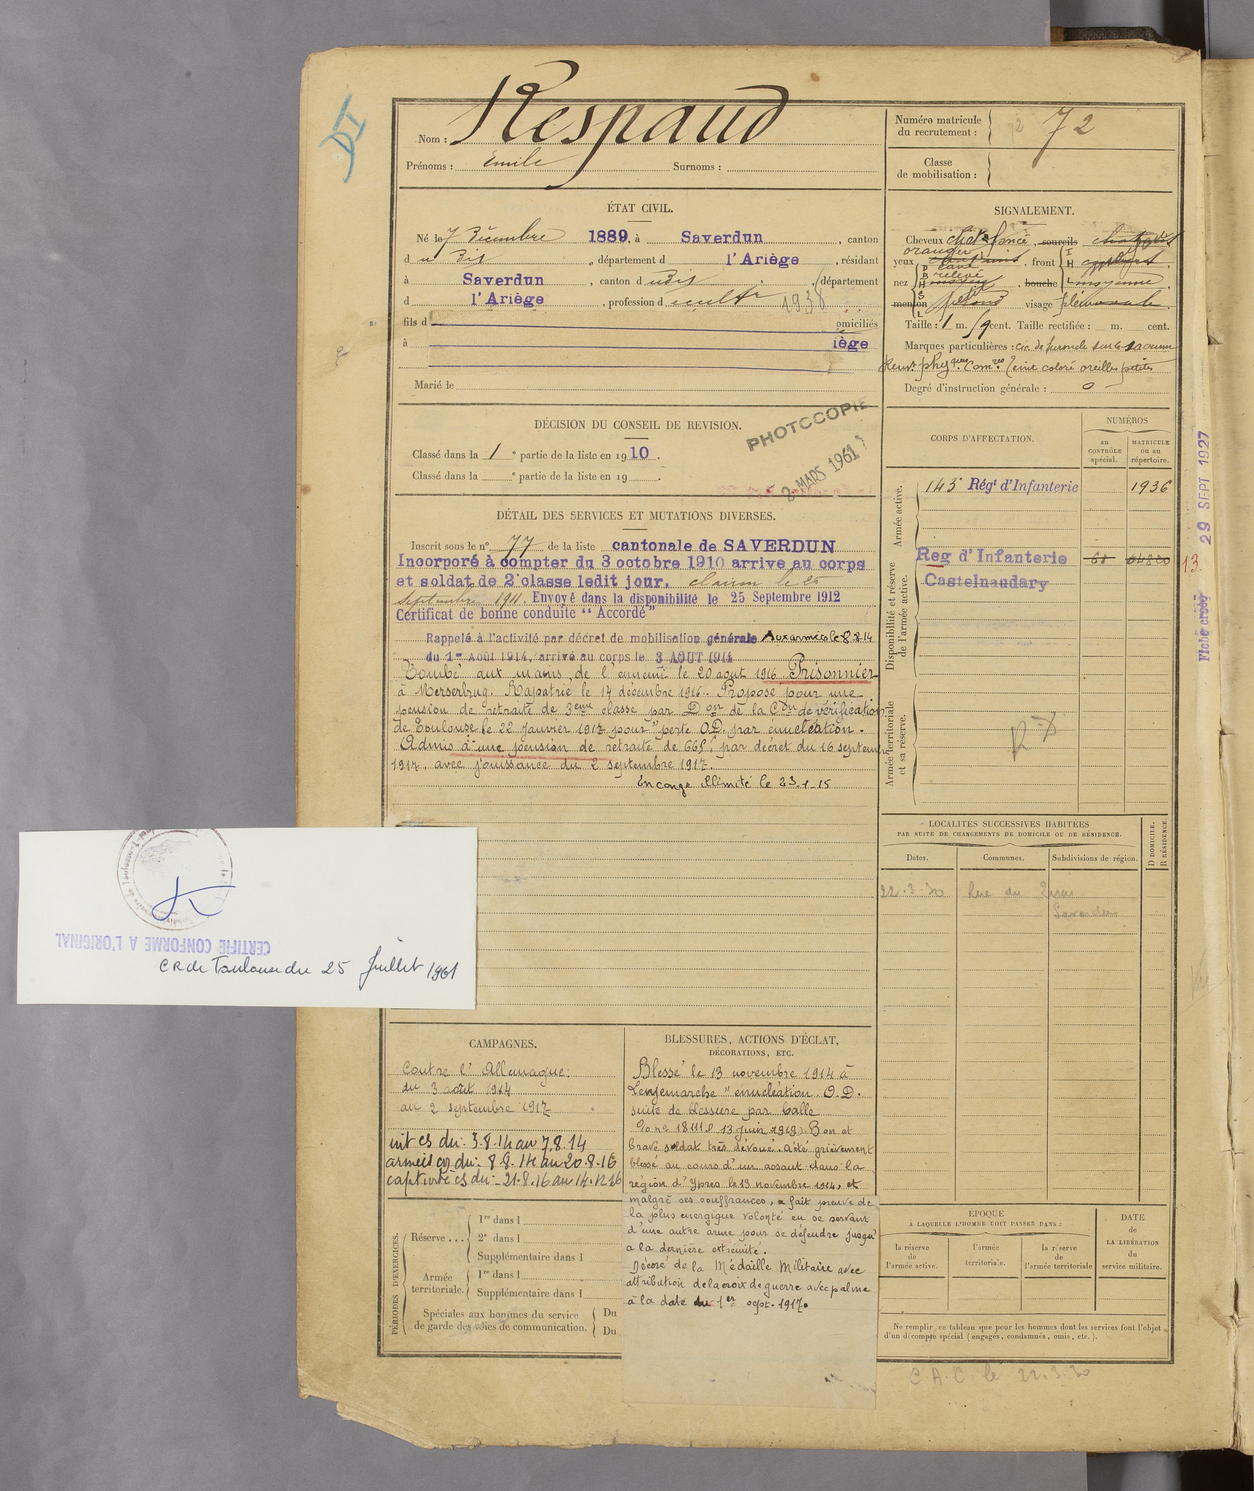 DI
Nom : Respaud
Prénoms : Emile Surnoms :
Numéro matricule du recrutement : 72
Classe de mobilisation :
ÉTAT CIVIL.
Né le 7 Décembre 1889, à Saverdun, canton
du dit, département d l'Ariège, résidant
à Saverdun, canton dudit, département
d l'Ariège, profession d cultr 1938
fils d omiciliés
à iège
Marié le
SIGNALEMENT.
Cheveux chat. foncé, sourcils
yeux oranger, front
nez cavé relevé bouche moyenne
menton visage
Taille : 1 m. cent. Taille rectifiée : m. cent.
Marques particulières : cic. de furoncle sur le
teint coloré oreilles petites
Degré d'instruction générale : 0
DÉCISION DU CONSEIL DE REVISION.
Classé dans la 1 e partie de la liste en 1910.
Classé dans la e partie de la liste en 19 .
PHOTOCOPIE
2 MARS 1961
CORPS D'AFFECTATION.
NUMÉROS
au CONTRÔLE spécial.
MATRICULE ou au répertoire.
Armée active.
143e Régt d'Infanterie 1936
Disponibilité et réserve de l'armée active.
Reg d'Infanterie
Castelnaudary
13.
29 SEPT 1927
Fiche créée
Armée territoriale et sa réserve.
DÉTAIL DES SERVICES ET MUTATIONS DIVERSES.
Inscrit sous le n° 77 de la liste cantonale de SAVERDUN
Incorporé à compter du 3 octobre 1910 arrive au corps
et soldat de 2e classe ledit jour. clairon le 25
septembre 1911. Envoyé dans la disponibilité le 25 Septembre 1912
Certificat de bonne conduite "Accordé"
Rappelé à l'activité par décret de mobilisation générale Aux armées le 8.8.14
du 1er Août 1914, arrivé au corps le 3 AOUT 1914
Tombé aux mains de l'ennemi le 20 août 1916. Prisonnier
à Merserbrug. Rapatrié le 14 décembre 1916. Proposé pour une
pension de retraite de 3eme classe par Don de la Con de vérification
de Toulouse le 22 Janvier 1917 pour "perte O.D. par énucléation.
Admis à une pension de retraite de 665f par décret du 16 septembre
1917, avec jouissance du 2 septembre 1917.
En congé illimité le 23-1-15
LOCALITÉS SUCCESSIVES HABITÉES
PAR SUITE DE CHANGEMENTS DE DOMICILE OU DE RÉSIDENCE.
Dates. Communes. Subdivisions de région. D DOMICILE. R RÉSIDENCE.
22.3.30 Rue du
Saverdun
CERTIFIÉ CONFORME A L'ORIGINAL
CR de Toulouse du 25 Juillet 1961
CAMPAGNES.
Contre l'Allemagne:
du 3 août 1914
au 2 septembre 1917
int cs du: 3.8.14 au 7.8.14
armées cs du: 8.8.14 au 20.8.16
captivité cs du: 21.8.16 au 14.12.16
BLESSURES, ACTIONS D'ÉCLAT,
DÉCORATIONS, ETC.
Blessé le 13 novembre 1914 à
Lengemarche "énucléation O.D.
suite de blessure par balle
13 Juin 1919: Bon et
brave soldat très dévoué. a été grièvement
blessé au cours d'un assaut dans la
région d'Ypres le 13 novembre 1914, et
malgré ses souffrances, a fait preuve de
la plus énergique volonté en se servant
d'une autre arme pour se défendre jusqu'
à la dernière extrémité.
Décoré de la Médaille Militaire avec
attribution de la croix de guerre avec palme
à la date du 1er sept. 1917.
PÉRIODES D'EXERCICES.
Réserve . . .
1re dans l
2e dans l
Supplémentaire dans l
Armée territoriale.
1re dans l
Supplémentaire dans l
Spéciales aux hommes du service
de garde des voies de communication.
Du
Du
ÉPOQUE
À LAQUELLE L'HOMME DOIT PASSER DANS :
la réserve de l'armée active.
l'armée territoriale.
la réserve de l'armée territoriale
DATE de LA LIBÉRATION du service militaire.
Ne remplir ce tableau que pour les hommes dont les services font l'objet
d'un décompte spécial (engagés, condamnés, omis, etc.).
C.A.C. le 22.3.30